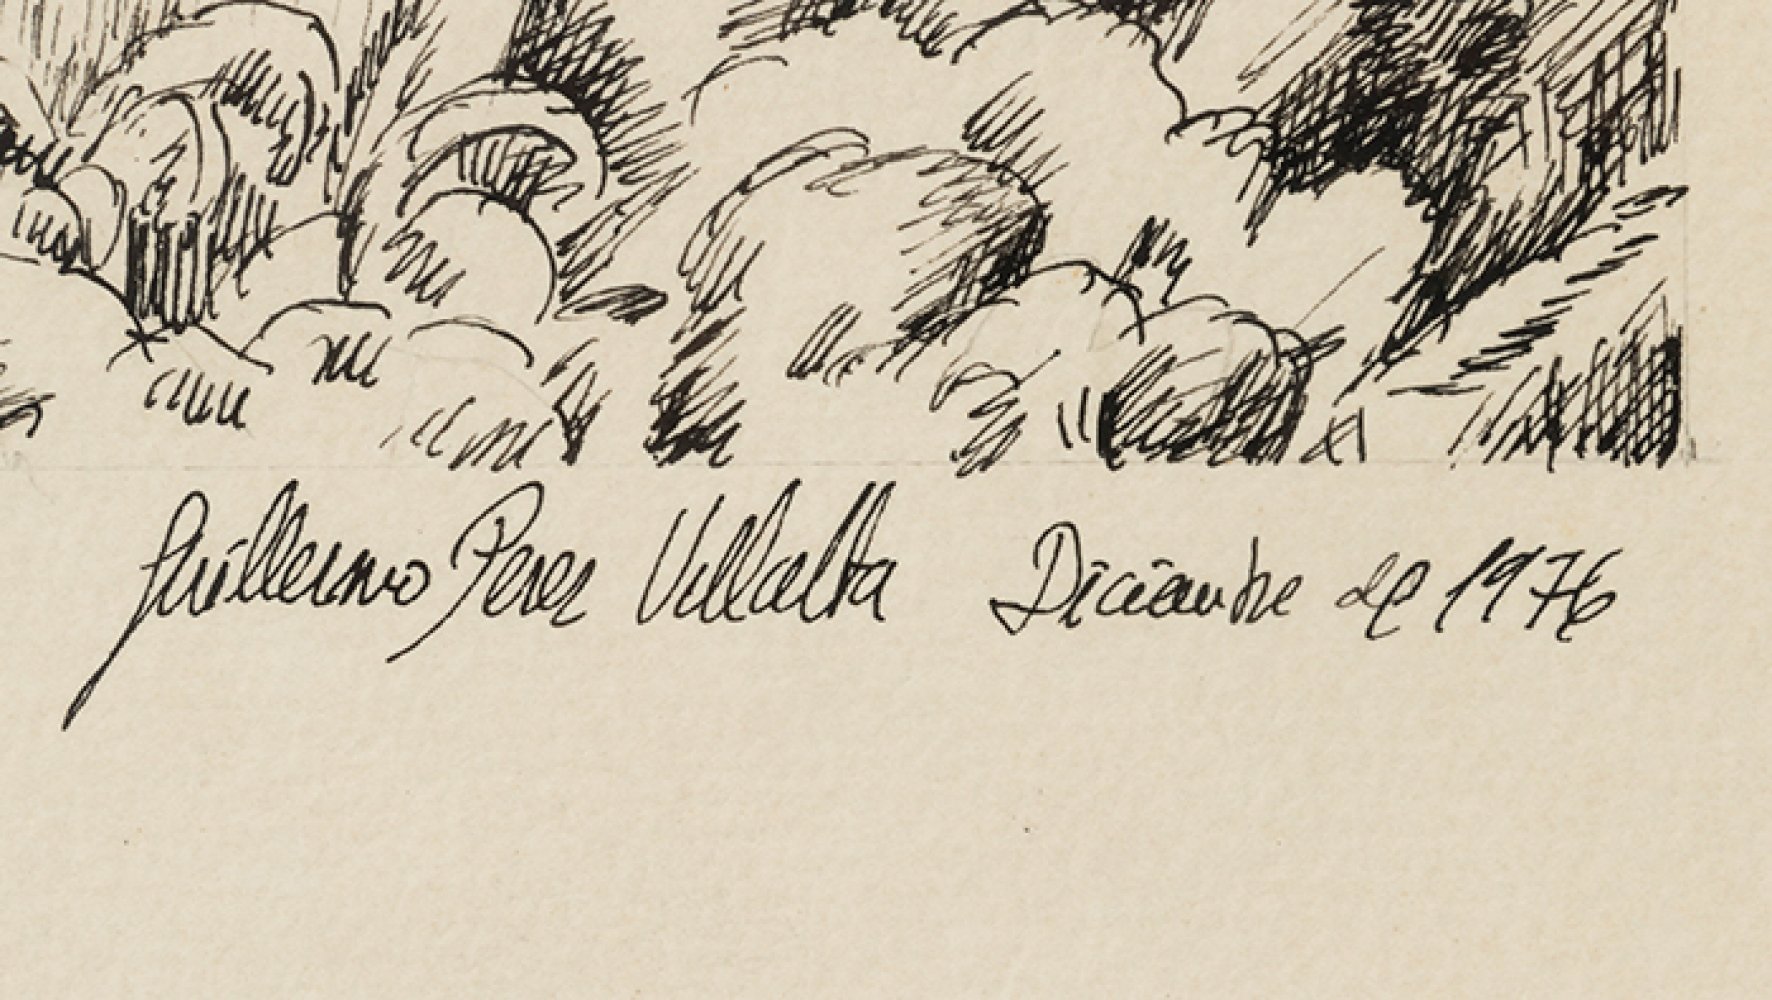 Guillermo Perez Villalta Diciembre de 1976